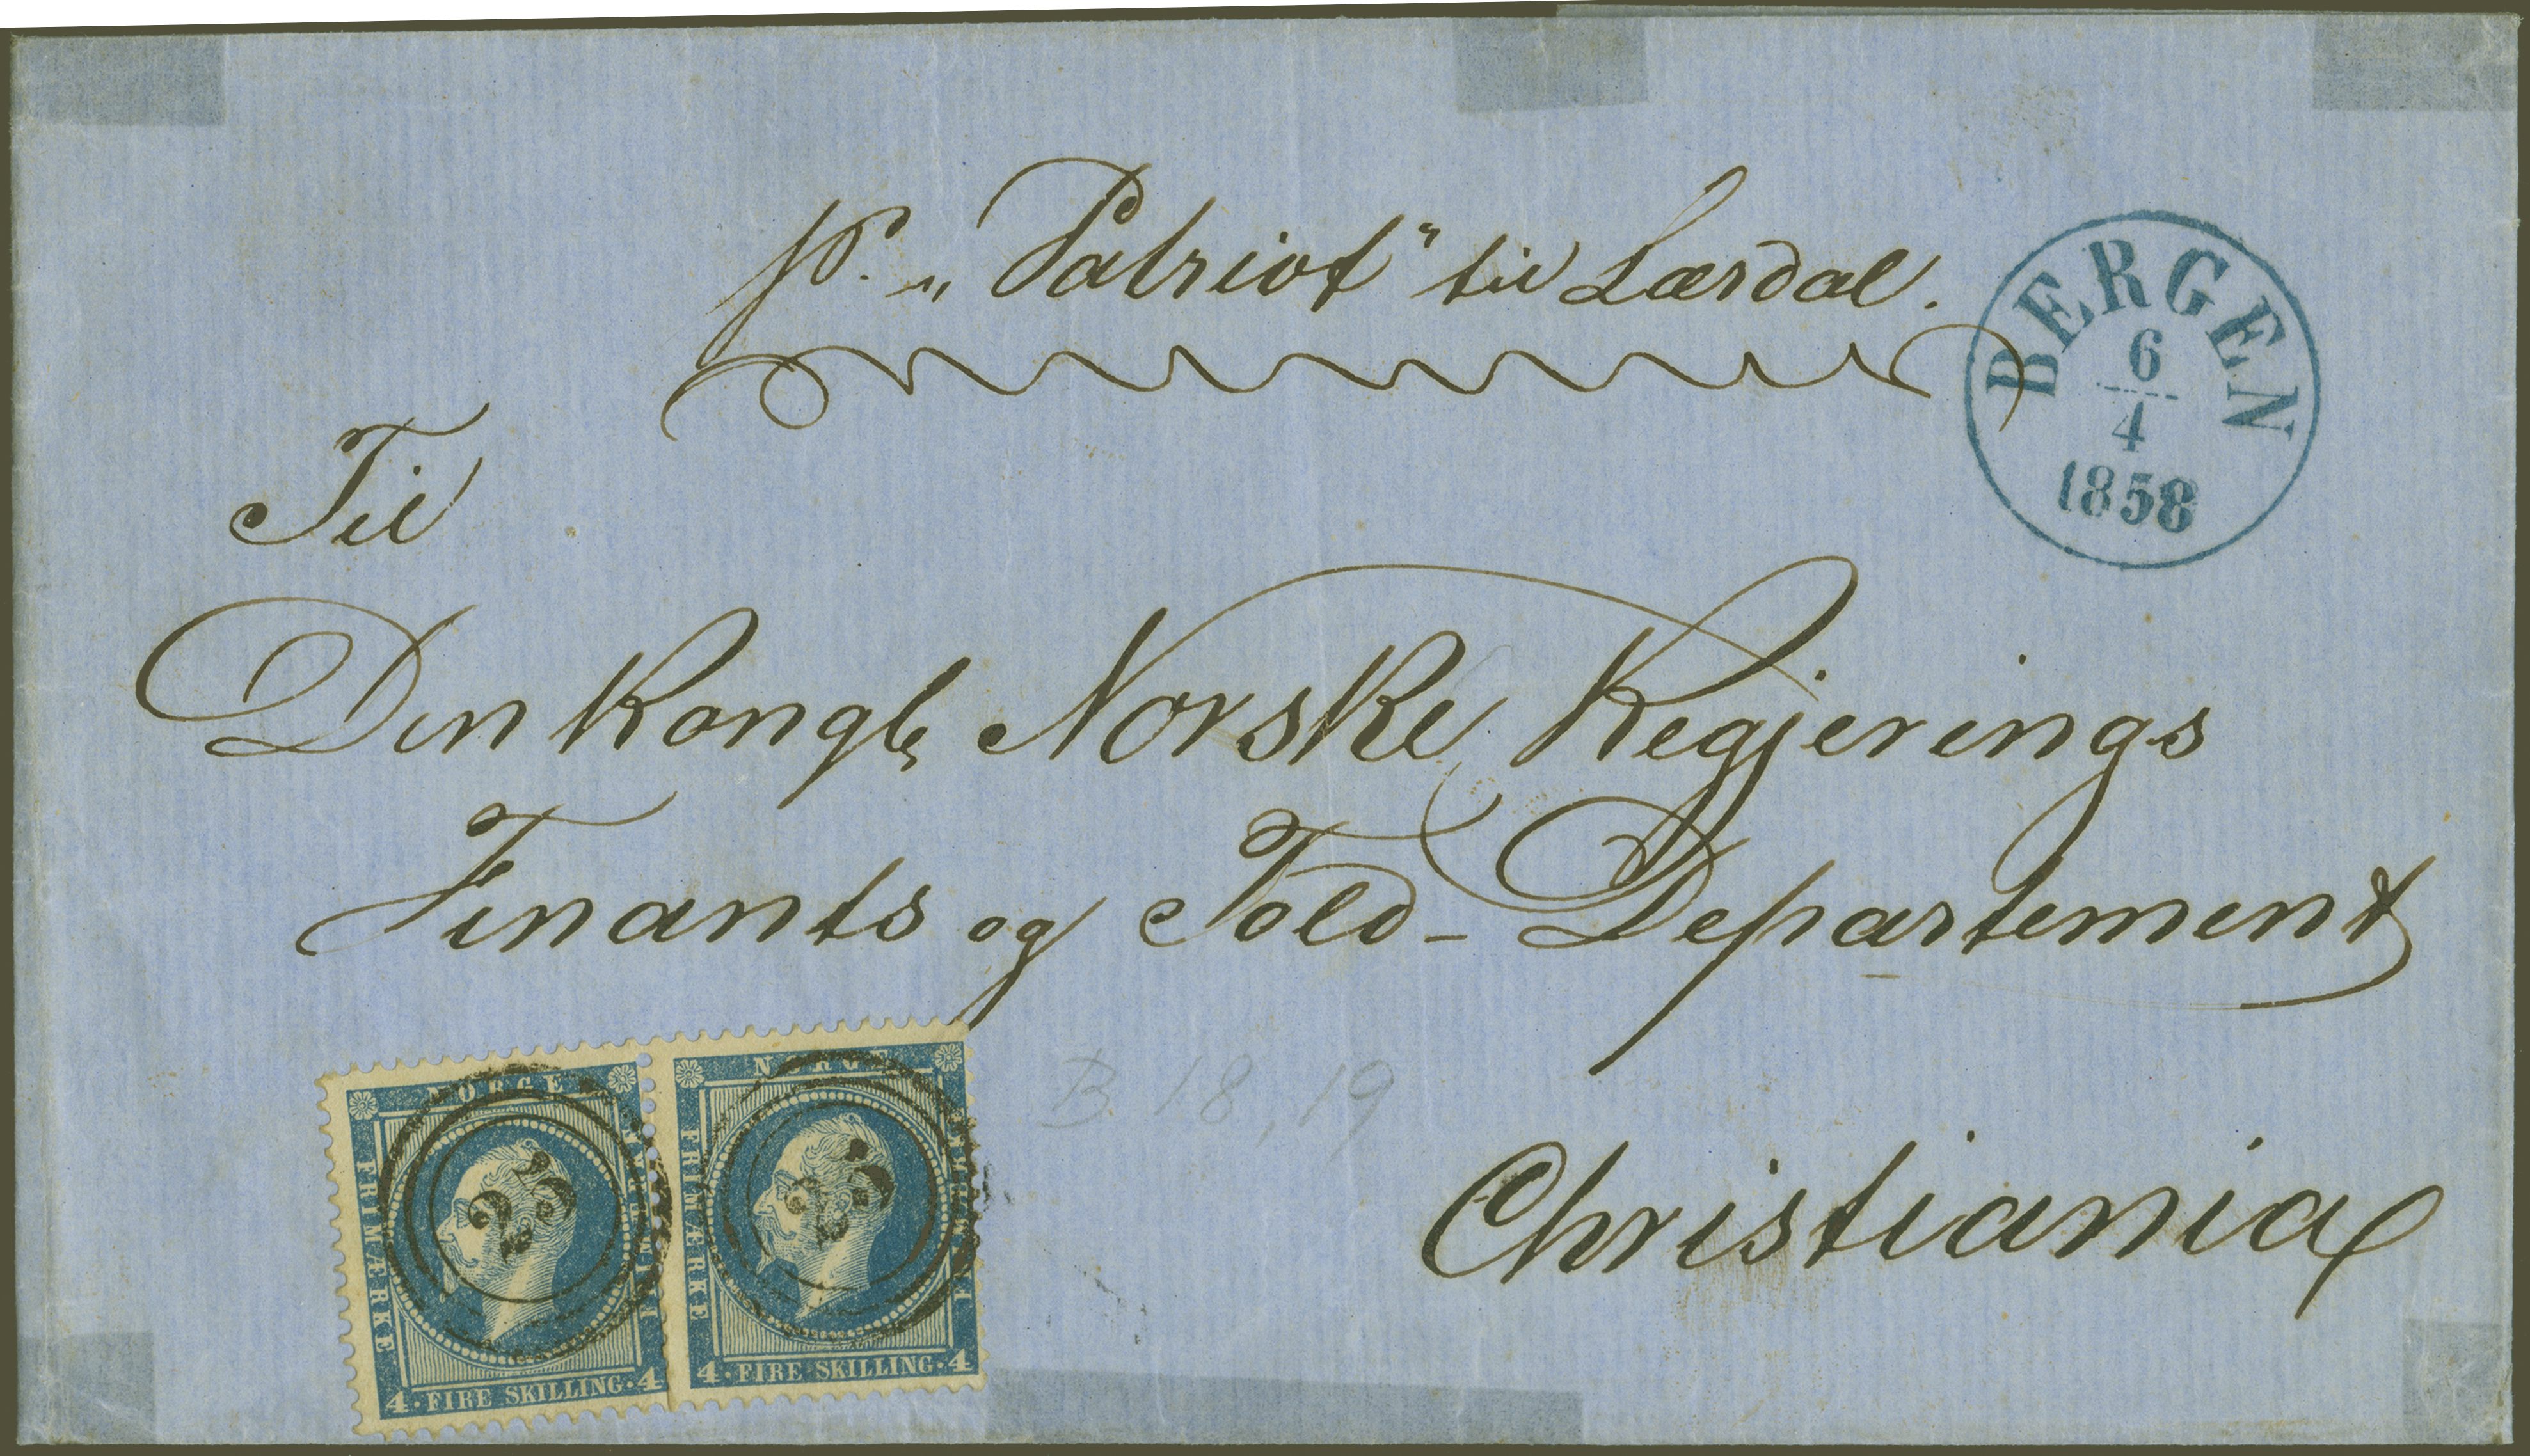 p. „Patriot" til Lærdal.
BERGEN
6
4
1858
Til
Den Kongl. Norske Regjerings
Finants og Told-Departement
Christiania
B 18, 19
NORGE
FRIMÆRKE
FRIMÆRKE
4·FIRE SKILLING·4
25
NORGE
FRIMÆRKE
FRIMÆRKE
4·FIRE SKILLING·4
25